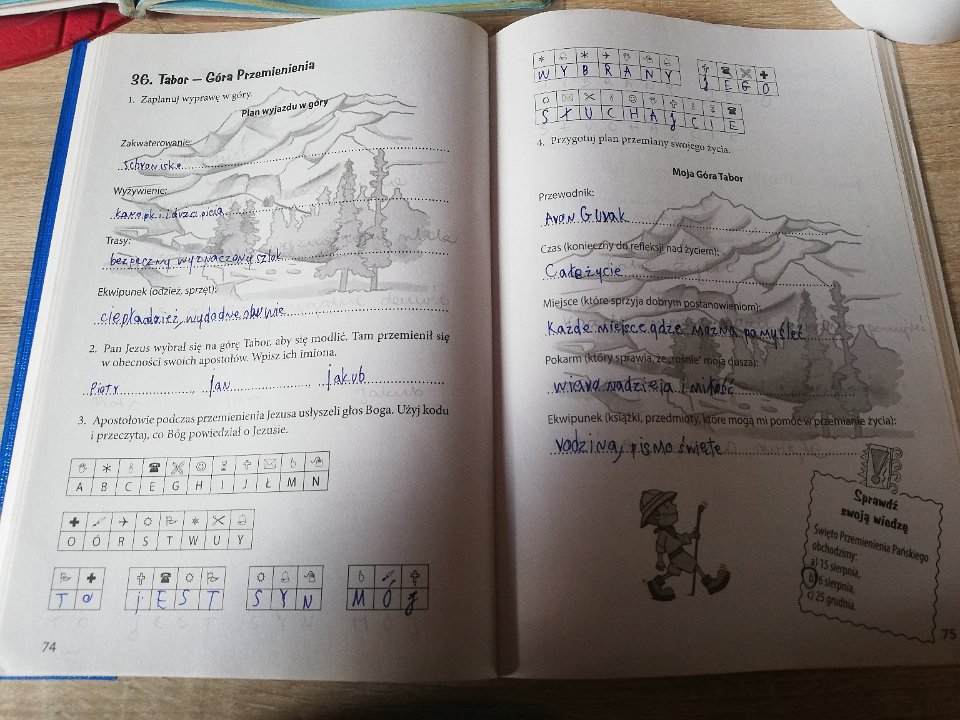 36. Tabor – Góra Przemienienia
1. Zaplanuj wyprawę w góry.
Plan wyjazdu w góry
Zakwaterowanie:
Schronisko
Wyżywienie:
kanapki i
Trasy:
bezpieczny wyznaczony szlak
Ekwipunek (odzież, sprzęt):
ciepła odzież, wygodne obuwie
2. Pan Jezus wybrał się na górę Tabor, aby się modlić. Tam przemienił się
w obecności swoich apostołów. Wpisz ich imiona.
Piotr, Jan, jakub
3. Apostołowie podczas przemienienia Jezusa usłyszeli głos Boga. Użyj kodu
i przeczytaj, co Bóg powiedział o Jezusie.
A B C E G H I J Ł M N
O Ó R S T W U Y
TO jEST SYN MÓJ
74
WYBRANY JEGO
SŁUCHAJCIE
4. Przygotuj plan przemiany swojego życia.
Moja Góra Tabor
Przewodnik:
Czas (konieczny do refleksji nad życiem):
Całe życie
Miejsce (które sprzyja dobrym postanowieniom):
Każde miejsce gdzie można pomyśleć
Pokarm (który sprawia, że „rośnie" moja dusza):
wiara nadzieja i miłość
Ekwipunek (książki, przedmioty, które mogą mi pomóc w przemianie życia):
rodzina, pismo święte
Sprawdź
swoją wiedzę
Święto Przemienienia Pańskiego
obchodzimy:
a) 15 sierpnia,
b) 6 sierpnia,
c) 25 grudnia.
75